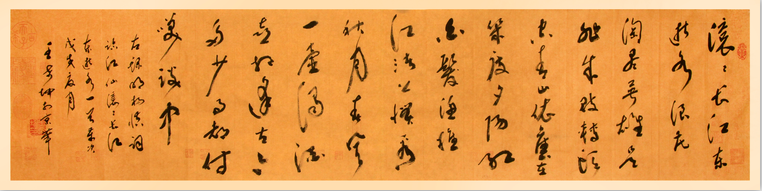 滚〻长江东
逝水浪花
淘尽英雄是
非成败转头
空青山依旧在
几度夕阳红
白发渔樵
江渚上惯看
秋月春风
一壶浊酒
喜相逢古今
多少事都付
笑谈中
右录明杨慎词
临江仙滚〻长江
东逝水一首岁次
夏月
王景坤书于京华